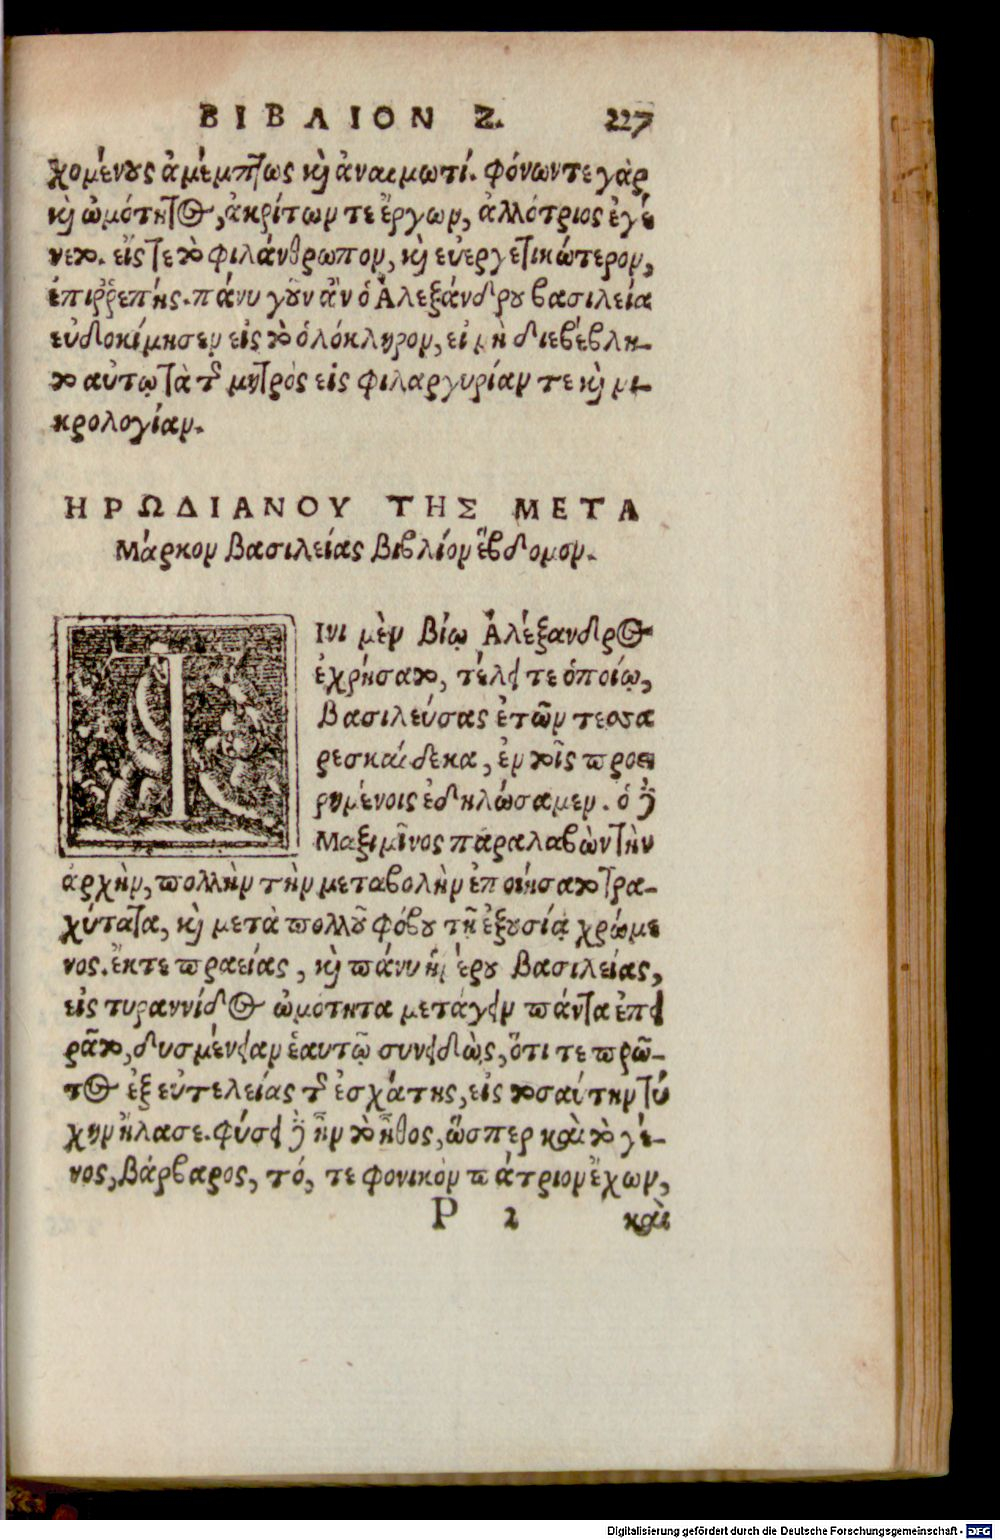 ΒΙΒΛΙΟΝ Ζ. 227
χομένους ἀμέμπτως καὶ ἀναιμωτί. φόνων τε γὰρ
καὶ ὠμότητος, ἀκρίτων τε ἔργων, ἀλλότριος ἐγέ
νετο. εἴς τε τὸ φιλάνθρωπον, καὶ εὐεργετικώτερον,
ἐπιρρεπής. πάνυ γοῦν ἂν ὁ Ἀλεξάνδρου βασιλεία
εὐδοκίμησεν εἰς τὸ ὁλόκληρον, εἰ μὴ διεβέβλη-
το αὐτῷ τὰ τῆς μητρὸς εἰς φιλαργυρίαν τε καὶ μι-
κρολογίαν.
ΗΡΩΔΙΑΝΟΥ ΤΗΣ ΜΕΤΑ
Μάρκον βασιλείας βιβλίον ἕβδομον.
ΤΙνι μὲν βίῳ Ἀλέξανδρος
ἐχρήσατο, τέλει τε ὁποίῳ,
βασιλεύσας ἐτῶν τεσσα
ρεσκαίδεκα, ἐν τοῖς προει
ρημένοις ἐδηλώσαμεν. ὁ δὲ
Μαξιμῖνος παραλαβὼν τὴν
ἀρχὴν, πολλὴν τὴν μεταβολὴν ἐποιήσατο τρα-
χύτατα, καὶ μετὰ πολλοῦ φόβου τῇ ἐξουσίᾳ χρώμε
νος. ἔκ τε πραείας, καὶ πάνυ ἡμέρου βασιλείας,
εἰς τυραννίδος ὠμότητα μετάγειν πάντα ἐπει
ρᾶτο, δυσμένειαν ἑαυτῷ συνειδὼς, ὅτι τε πρῶ-
τος ἐξ εὐτελείας τῆς ἐσχάτης, εἰς τοσαύτην τύ
χην ἤλασε. φύσει δὲ ἦν τὸ ἦθος, ὥσπερ καὶ τὸ γέ-
νος, βάρβαρος, τό, τε φονικὸν πάτριον ἔχων,
P 2 καὶ
Digitalisierung gefördert durch die Deutsche Forschungsgemeinschaft - DFG